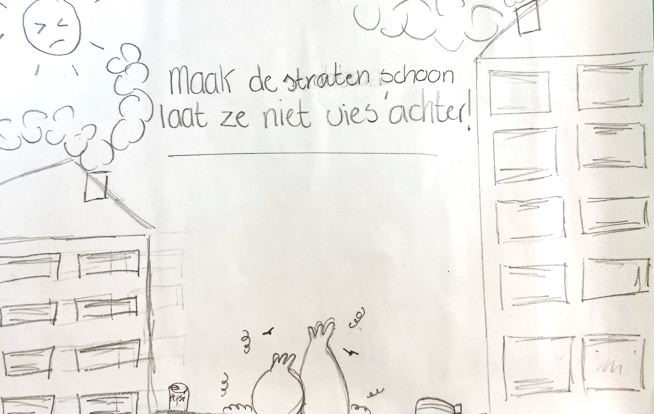 Maak de straten schoon
laat ze niet vies achter!